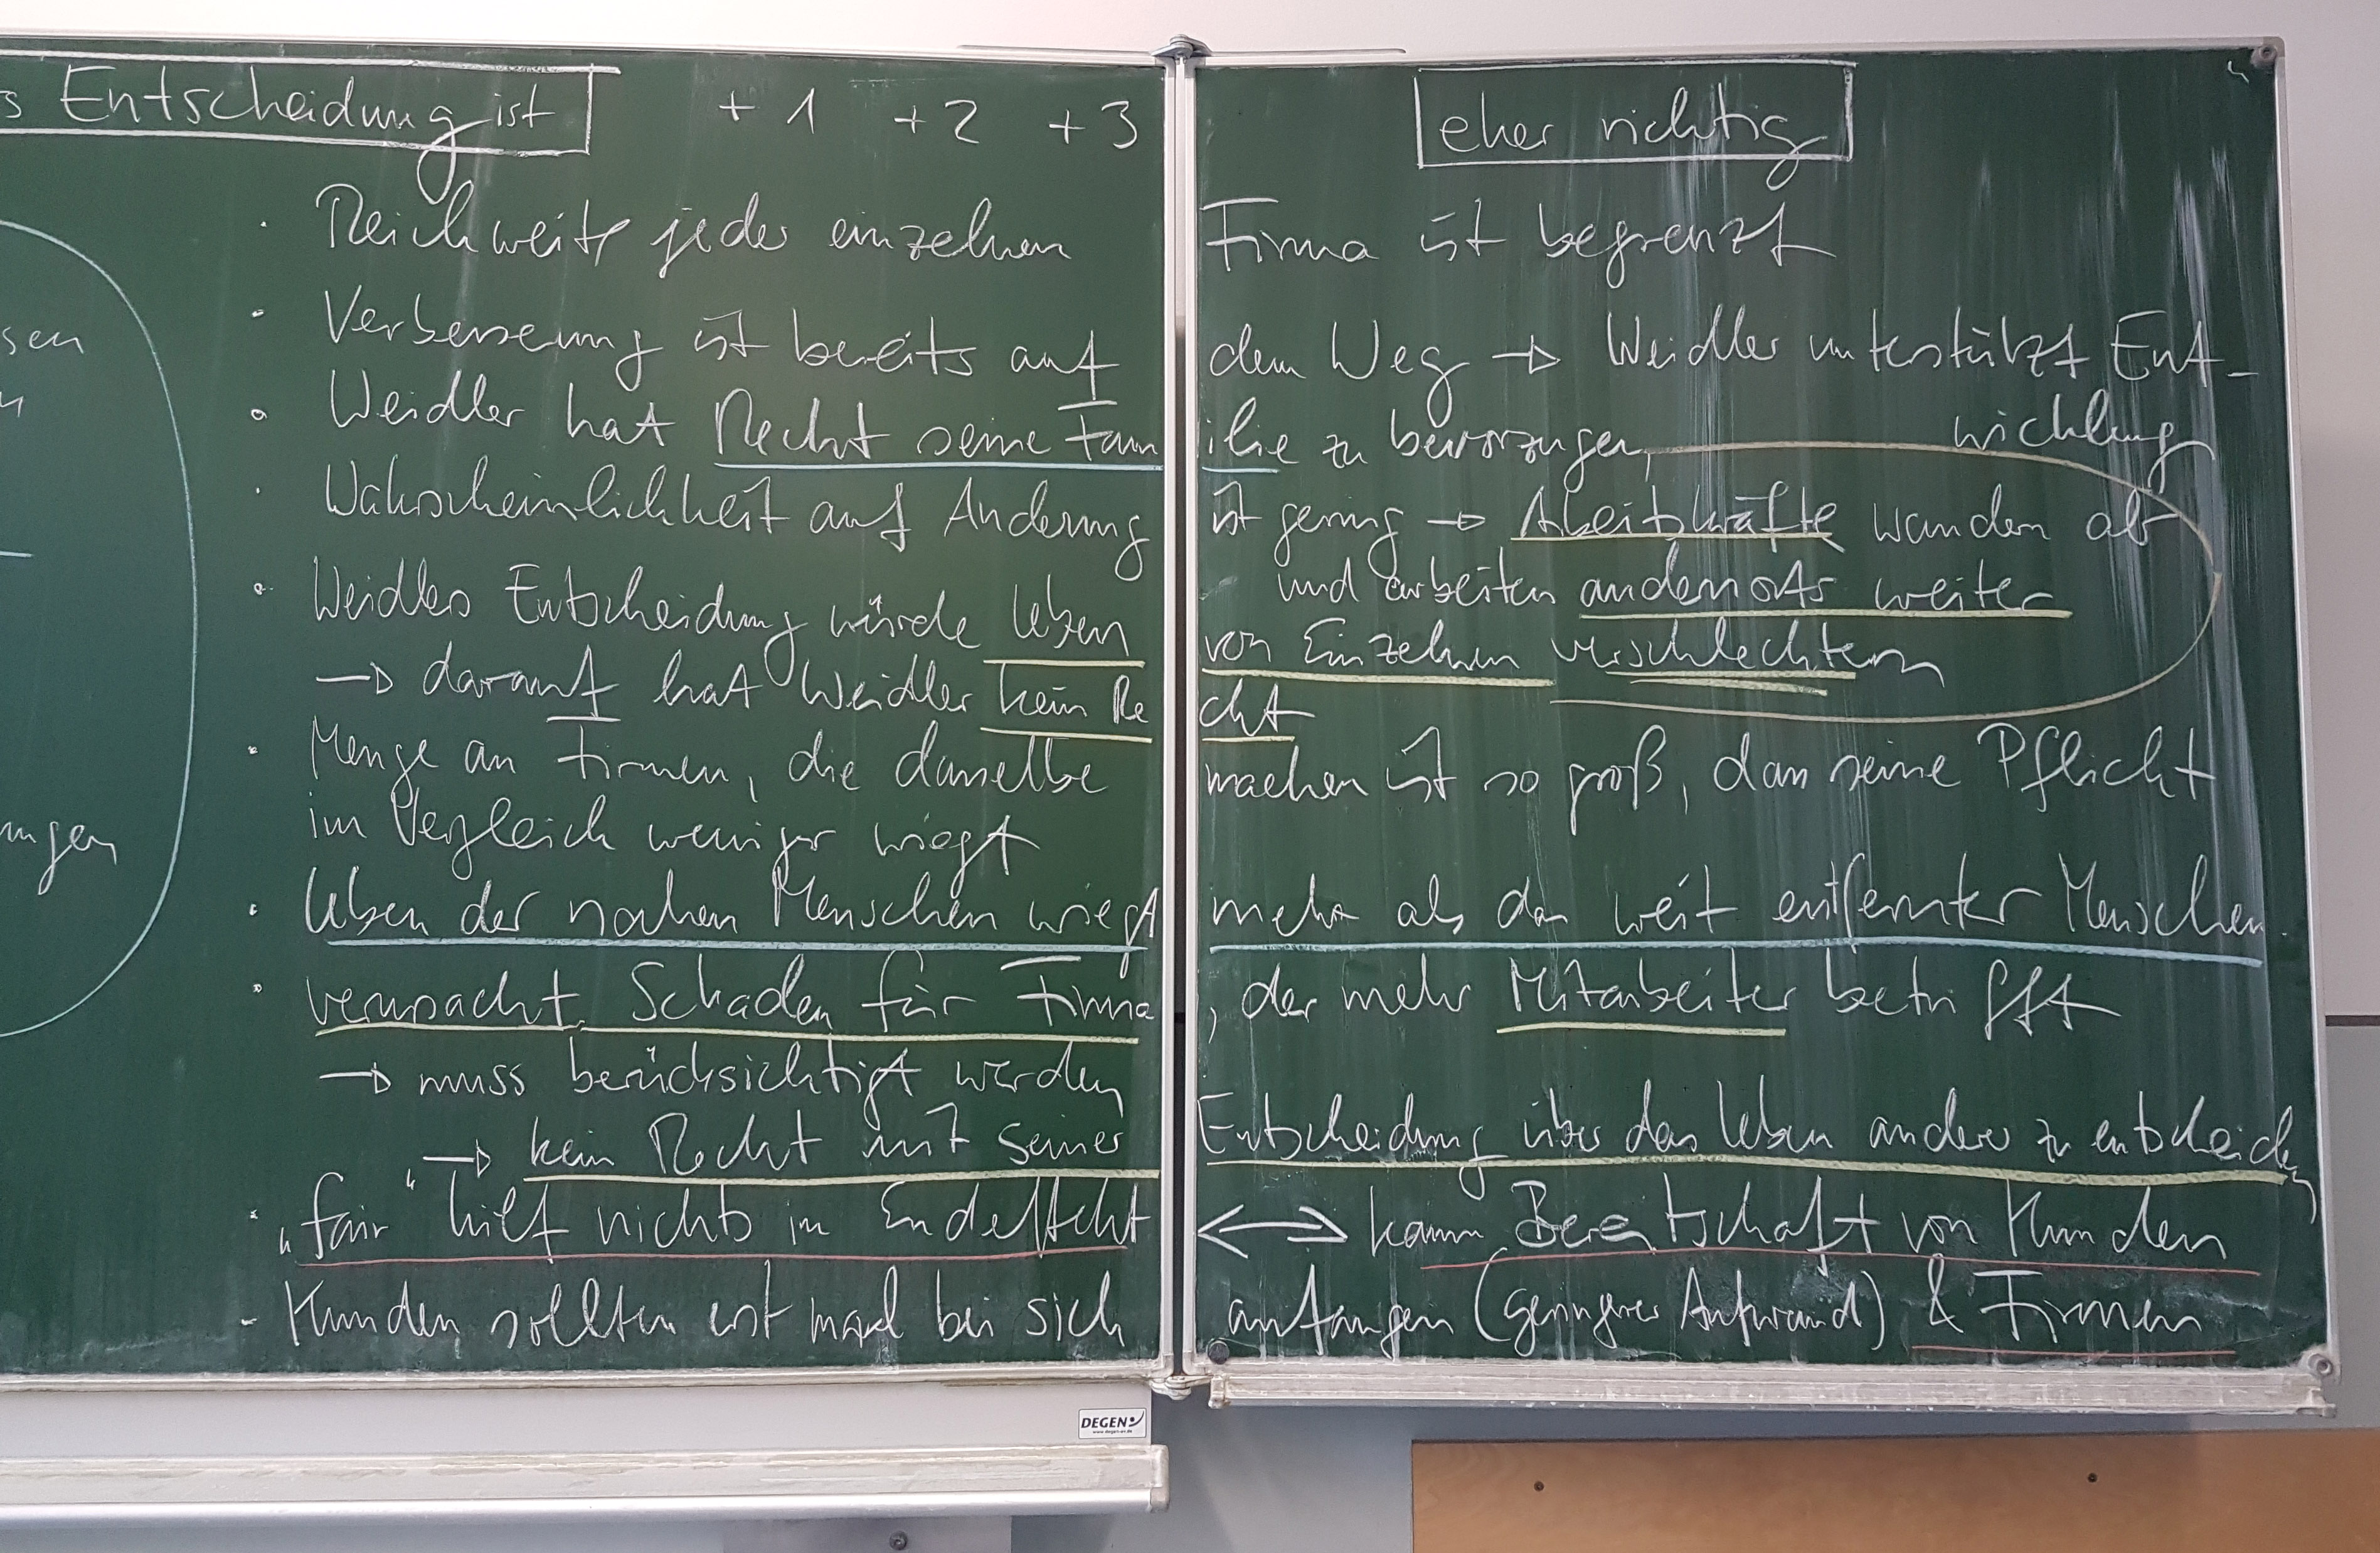 s Entscheidung ist +1 +2 +3 eher richtig
sen
ungen
· Reichweite jeder einzelnen Firma ist begrenzt
· Verbesserung ist bereits auf dem Weg → Weidler unterstützt Ent-
wicklung
· Weidler hat Recht seine Familie zu bevorzugen,
· Wahrscheinlichkeit auf Änderung ist gering → Arbeitskräfte wandern ab
und arbeiten andernorts weiter
· Weidlers Entscheidung würde Leben von Einzelnen verschlechtern
→ darauf hat Weidler kein Recht
· Menge an Firmen, die dasselbe machen ist so groß, dass seine Pflicht
im Vergleich weniger wiegt
· Leben der nahen Menschen wiegt mehr als das weit entfernter Menschen
· verursacht Schaden für Firma, der mehr Mitarbeiter betrifft
→ muss berücksichtigt werden
→ kein Recht mit seiner Entscheidung über das Leben anderer zu entscheiden
· „fair" hilft nichts in ↔ kaum Bereitschaft von Kunden
- Kunden sollten erst mal bei sich anfangen (geringerer Aufwand) & Firmen
DEGEN